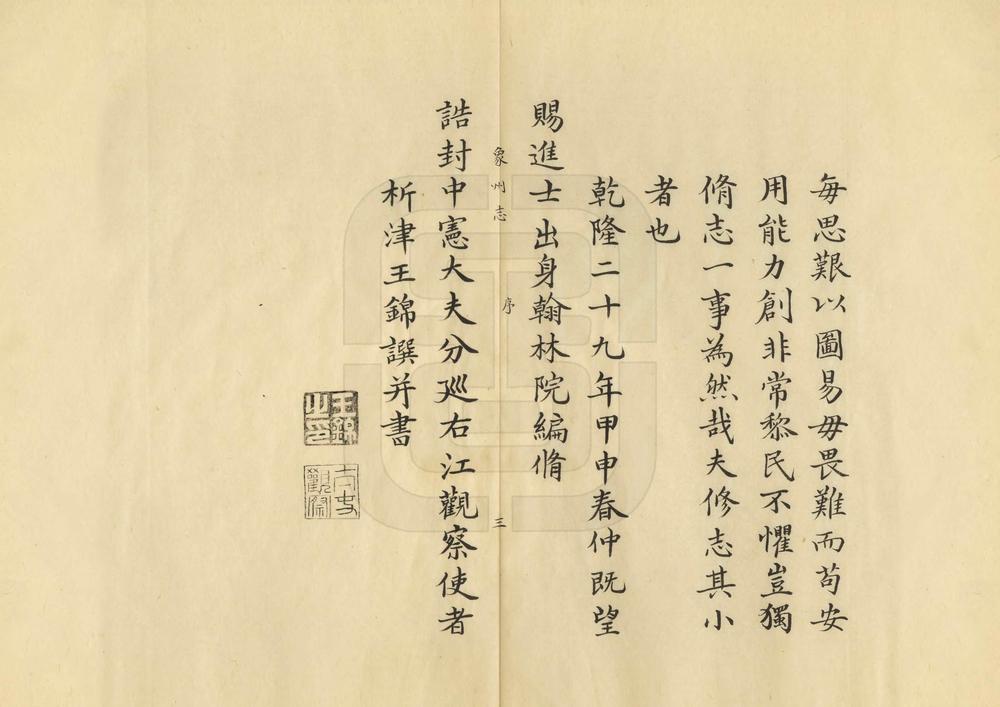 每思艱以圖易毋畏難而苟安
用能力創非常黎民不懼豈獨
脩志一事為然哉夫修志其小
者也
乾隆二十九年甲申春仲既望
賜進士出身翰林院編脩
象州志
序
三
誥封中憲大夫分廵右江觀察使者
析津王錦譔并書
王錦之印
太史觀察